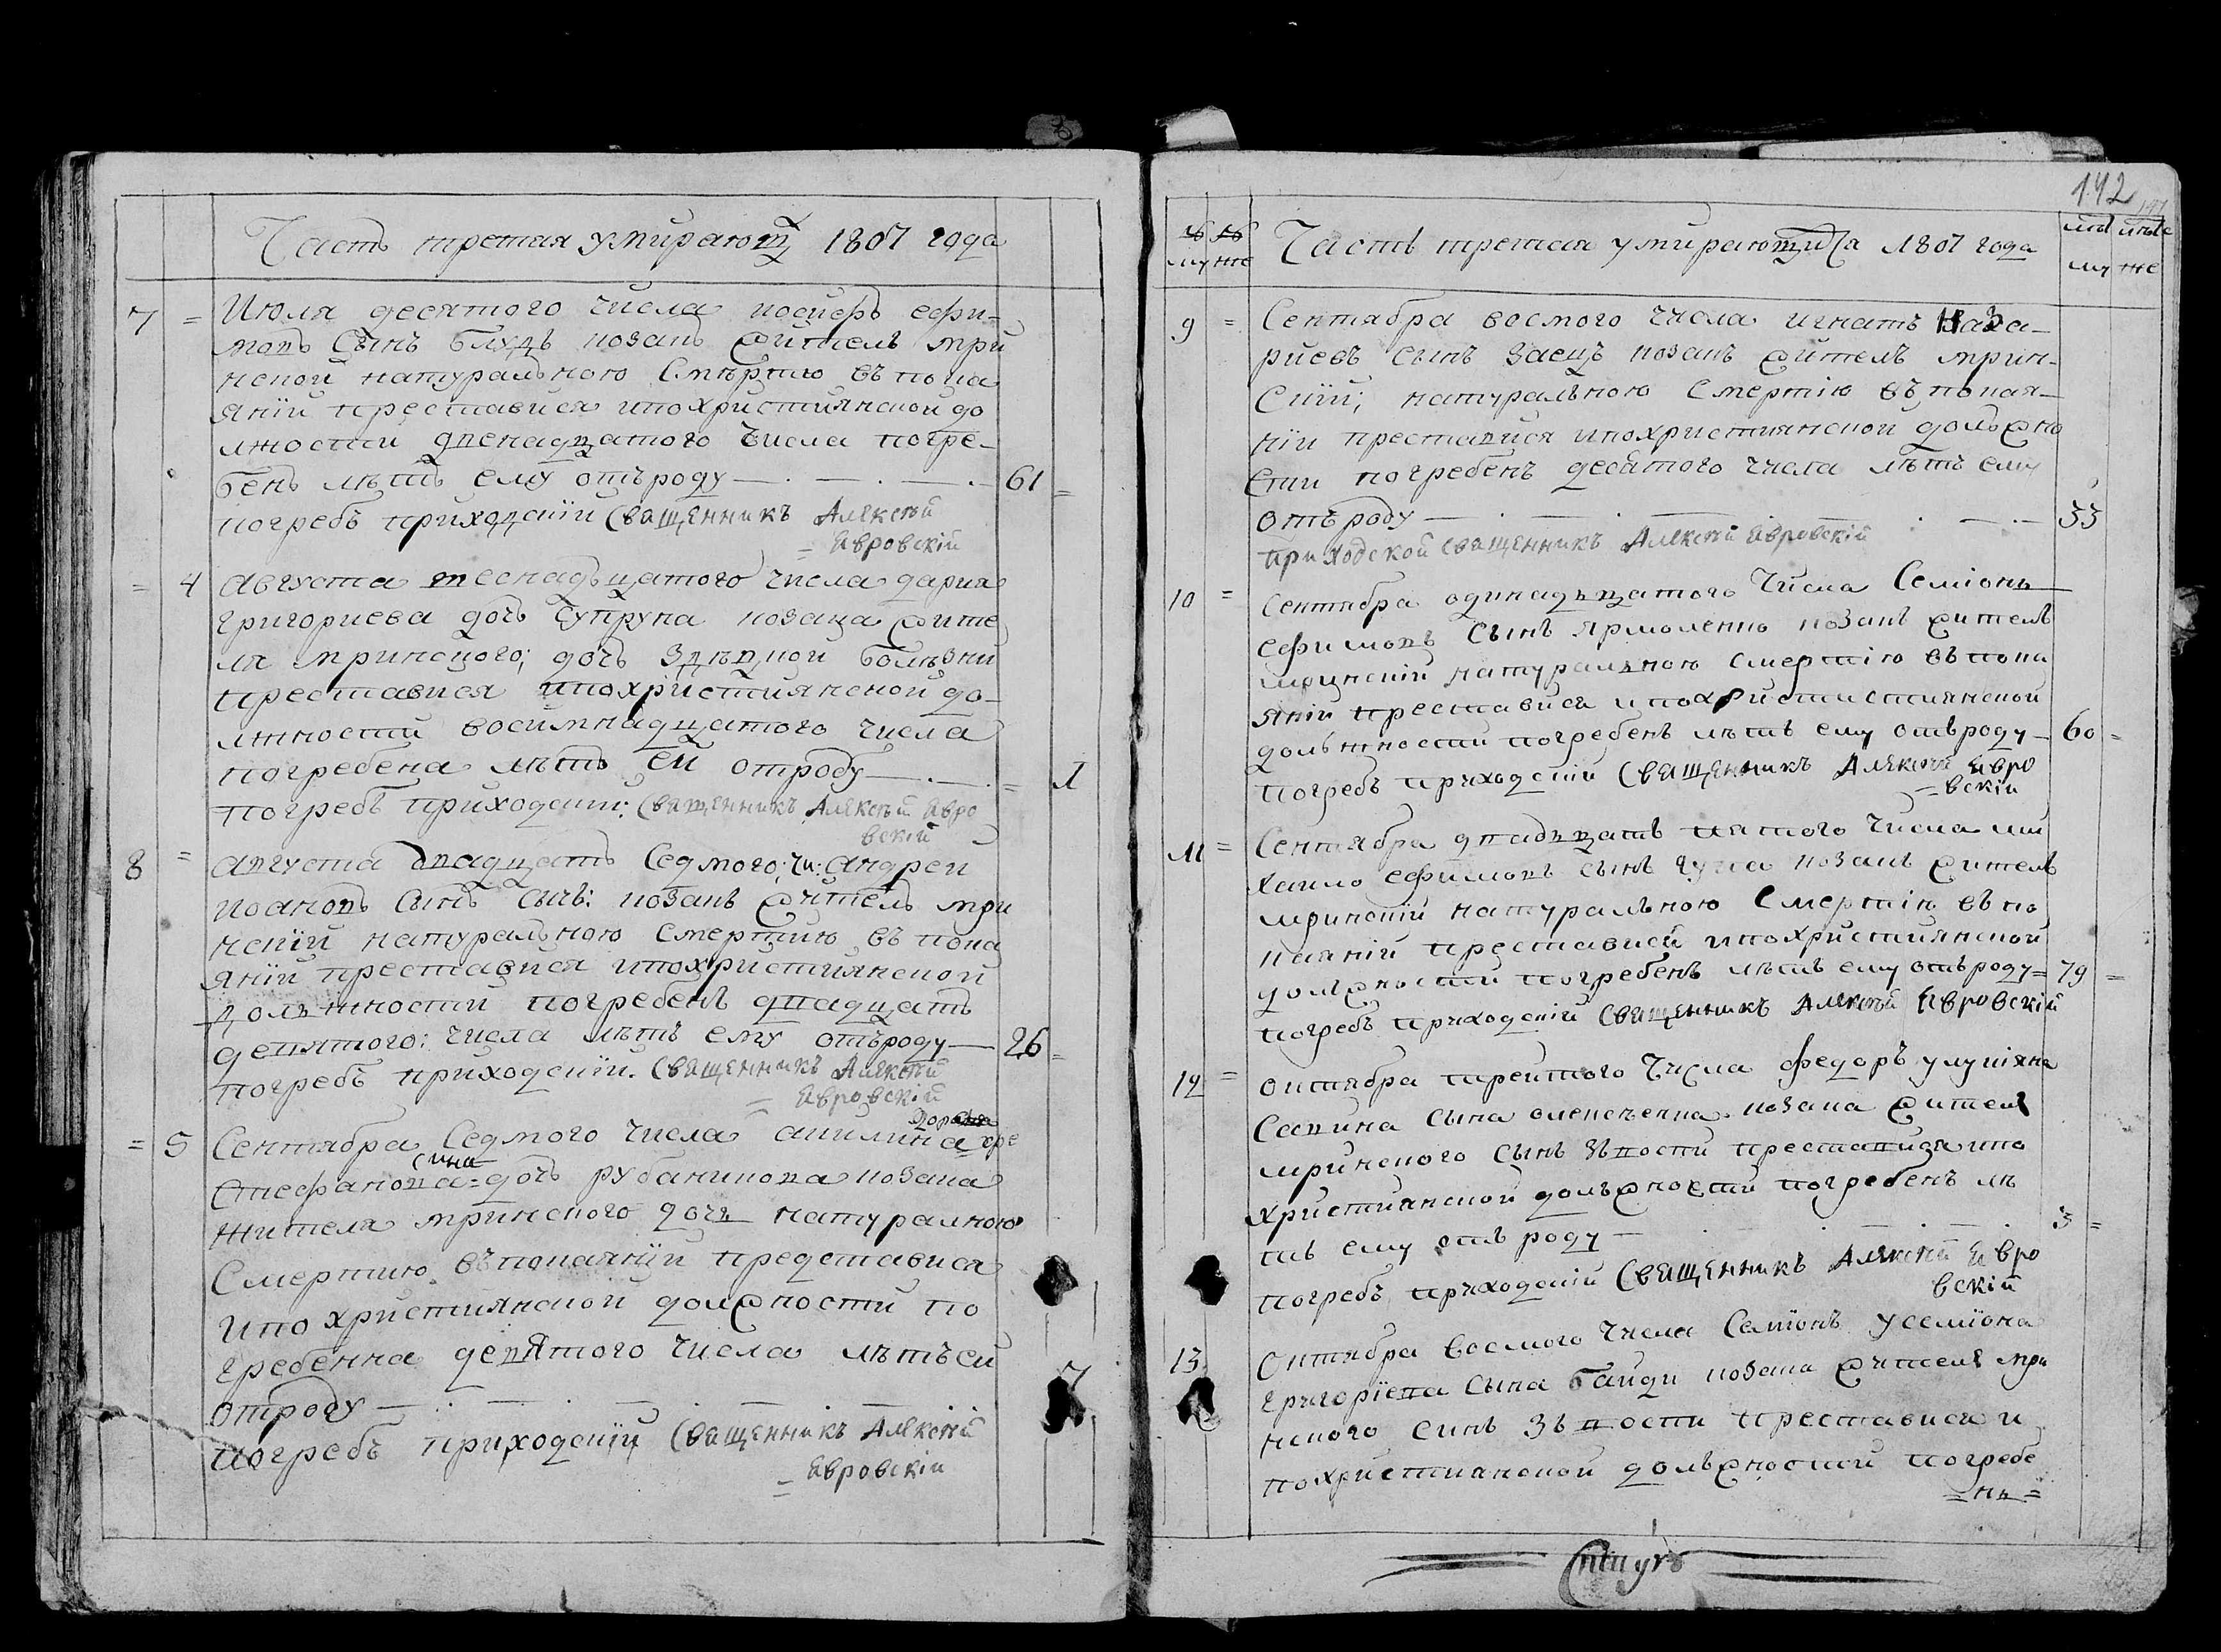 Часть третая умирающ 1807 года
7 = Июля десятого числа иосифъ ефи-
мовъ Сынъ козакъ житель мри
нской натуральною Смертию въ пока
янїи преставися ипохристиянской до
лжности двенадцатого числа погре-
бенъ лѣтъ ему отъроду — 61 =
погребъ приходскїи Священникъ Алексѣй
= Явровскій
= 4 августа шеснадьцатого числа дария
григориева дочь Супруна козака жите
ля мринского; дочь болѣзни
преставися ипохристиянской до-
лжности восимнадцатого числа
погребена лѣтъ ей отроду — = 1
погребъ приходскии: Священникъ Алексѣй Явро
вскій
8 = августа двадцать Седмого: чи: андреи
иоановъ Сынъ Сычъ: козакъ житель мри
нскїи натуральною смертию въ пока
янїи преставися ипохристиянской
должности погребенъ двадцать
девятого: числа лѣтъ ему отъроду — 26 =
погребъ приходскїи. Священникъ Алексѣй
= Явровскій
= 5 Сентября Седмого числа акилина
Стефанова = дочь рубаникова козака
жителя мринского дочь натуралною
Смертию въпокаянїи представися
ипохристиянской должности по
гребенна девятого числа лѣтъ ей
отроду — 7
погребъ приходскїи Священникъ Алексѣй
= Явровскій
142
му же Часть третая умирающихся 1807 года му же
9 = Сентября восмого числа игнатъ Наза-
риевъ сынъ заецъ козакъ жителъ мрин-
Скїи; натуральною смертію въ покая-
нїи преставися ипохристиянской должно
сти погребенъ десятого числа лѣтъ ему
отъроду — 33
приходской священникъ Алексѣй Явровскій
10 = Сентября одинадьцатого числа Семіонъ
ефимовъ сынъ ярмоленко козакъ жителъ
мринскїй натуралною смертію въ пока
янїи преставися и похристистиянской
дольжности погребенъ лѣтъ ему отъроду — 60 =
погребъ приходскїи Священникъ Алексѣй Явро
= вскій
11 = Сентября двадьцать пятого числа ми
хаило ефимовъ сынъ козакъ жителъ
мринскїй натуральною Смертію въ по
каянїи преставися ипохристиянской
должности погребенъ лѣтъ ему отъроду = 79 =
погребъ приходскїи Священникъ Алексѣй Явровскій
12 = октября третого числа федоръ улукіяна
Савина сына козака жителя
мринского сынъ преставися ипо
християнской дольжности погребенъ лѣ
тъ ему отъ роду — 3 =
погребъ приходскїи Священникъ Алексѣй Явро
вскій
13 Октября восмого числа Семїонъ усемїона
григорїева сына Байди козака жителя мри
нского синъ преставися и
похристиянской дольжности погребе
= нъ =